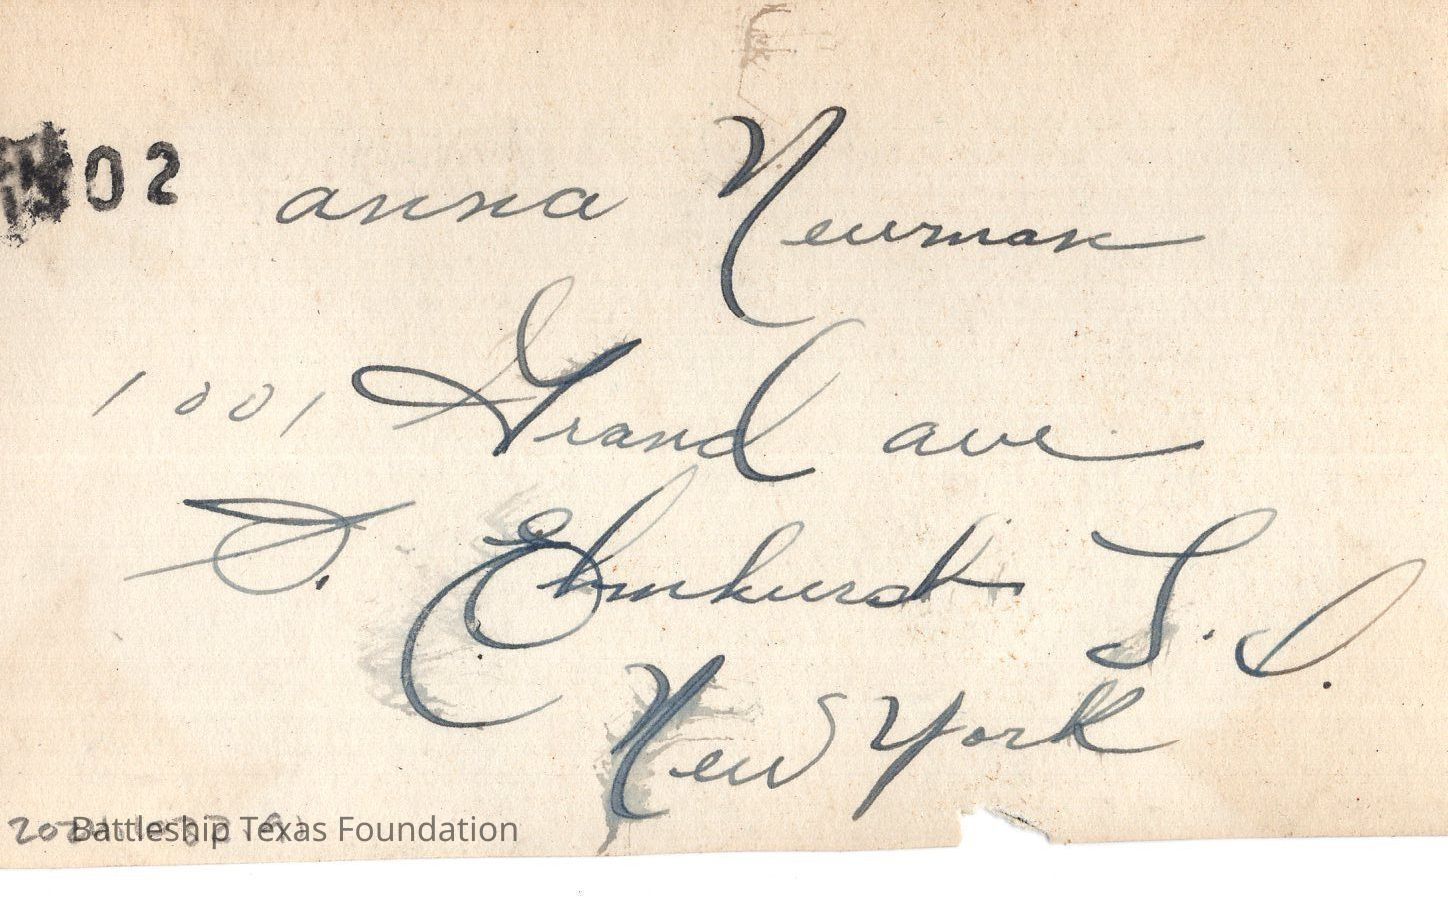 02
anna Newman
1001 Grand ave
S. Elmhurst L. I.
New York
Battleship Texas Foundation